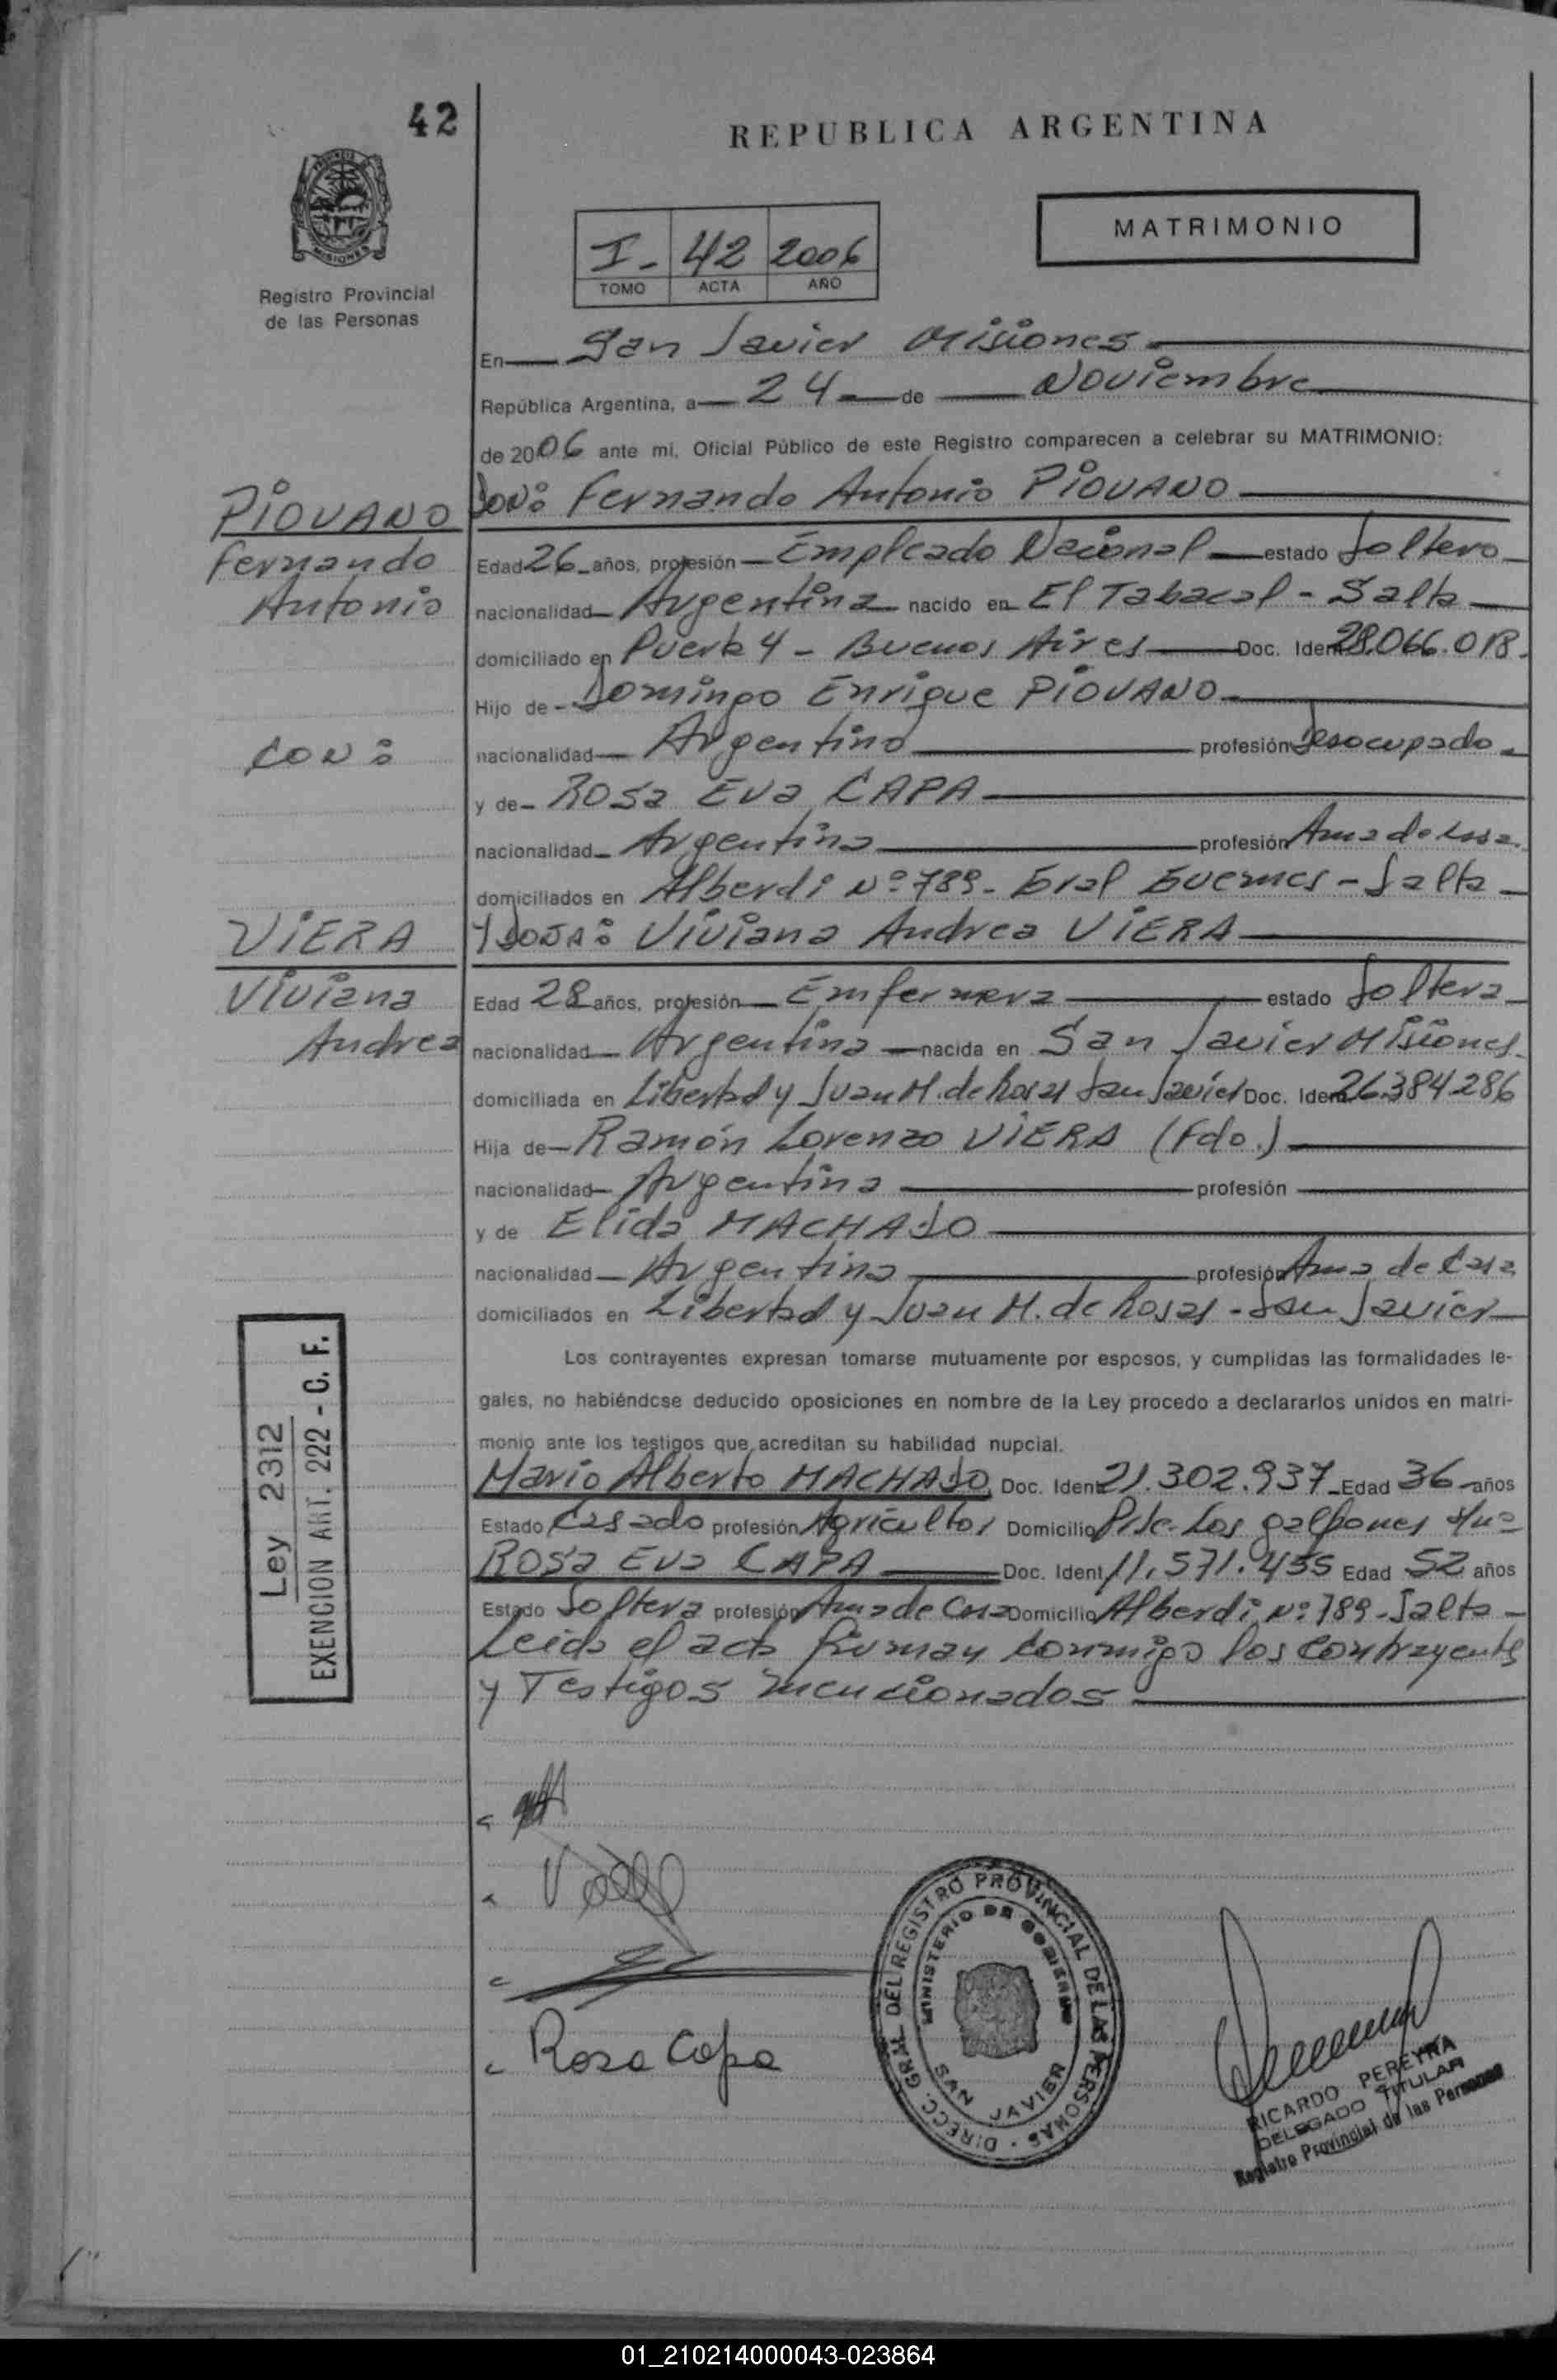 42
REPUBLICA ARGENTINA
MISIONES
Registro Provincial
de las Personas
I- 42 2006
TOMO ACTA AÑO
MATRIMONIO
En San Javier Misiones
República Argentina, a 24 de Noviembre
de 2006 ante mi, Oficial Público de este Registro comparecen a celebrar su MATRIMONIO:
PIOVANO
Fernando
Antonio
CON:
VIERA
Viviana
Andrea
DON: Fernando Antonio PIOVANO
Edad 26 años, profesión Empleado Nacional estado Soltero
nacionalidad Argentina nacido en El Tabacal - Salta
domiciliado en Puerta 4 - Buenos Aires Doc. Iden. 28.066.018.
Hijo de Domingo Enrique PIOVANO
nacionalidad Argentino profesión Desocupado
y de Rosa Eva CAPA
nacionalidad Argentina profesión Ama de Casa.
domiciliados en Alberdi Nº 789- Gral Guemes - Salta
Y DOÑA: Viviana Andrea VIERA
Edad 28 años, profesión Emfermera estado Soltera
nacionalidad Argentina nacida en San Javier Misiones.
domiciliada en Libertad y Juan M. de Rosas San Javier Doc. Iden. 26.384.286
Hija de Ramón Lorenzo VIERA (Fdo.)
nacionalidad Argentina profesión
y de Elida MACHADO
nacionalidad Argentina profesión Ama de Casa
domiciliados en Libertad y Juan M. de Rosas - San Javier
Los contrayentes expresan tomarse mutuamente por esposos, y cumplidas las formalidades le-
gales, no habiéndose deducido oposiciones en nombre de la Ley procedo a declararlos unidos en matri-
monio ante los testigos que acreditan su habilidad nupcial.
Mario Alberto MACHADO Doc. Ident. 21.302.937 Edad 36 años
Estado Casado profesión Agricultor Domicilio Los galpones
Rosa Eva CAPA Doc. Ident. 11.571.455 Edad 52 años
Estado Soltera profesión Ama de Casa Domicilio Alberdi Nº 789 - Salta
Leida el acta firman conmigo los contrayentes
y Testigos mencionados
Ley 2312
EXENCION ART. 222 - C. F.
Rosa Capa
DIRECC. GRAL. DEL REGISTRO PROVINCIAL DE LAS PERSONAS
MINISTERIO DE GOBIERNO
SAN JAVIER
RICARDO PEREYRA
DELEGADO TITULAR
Registro Provincial de las Personas
01_210214000043-023864